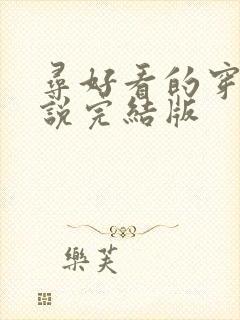 尋好看的穿
說完結版
樂芙